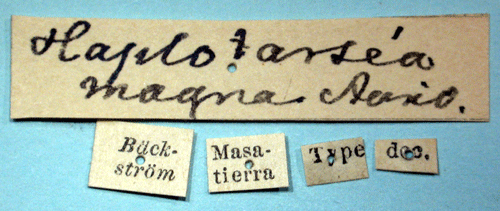 Haplotarséa
magna Aurio.
Bäck-
ström
Masa-
tierra
Type
dec.